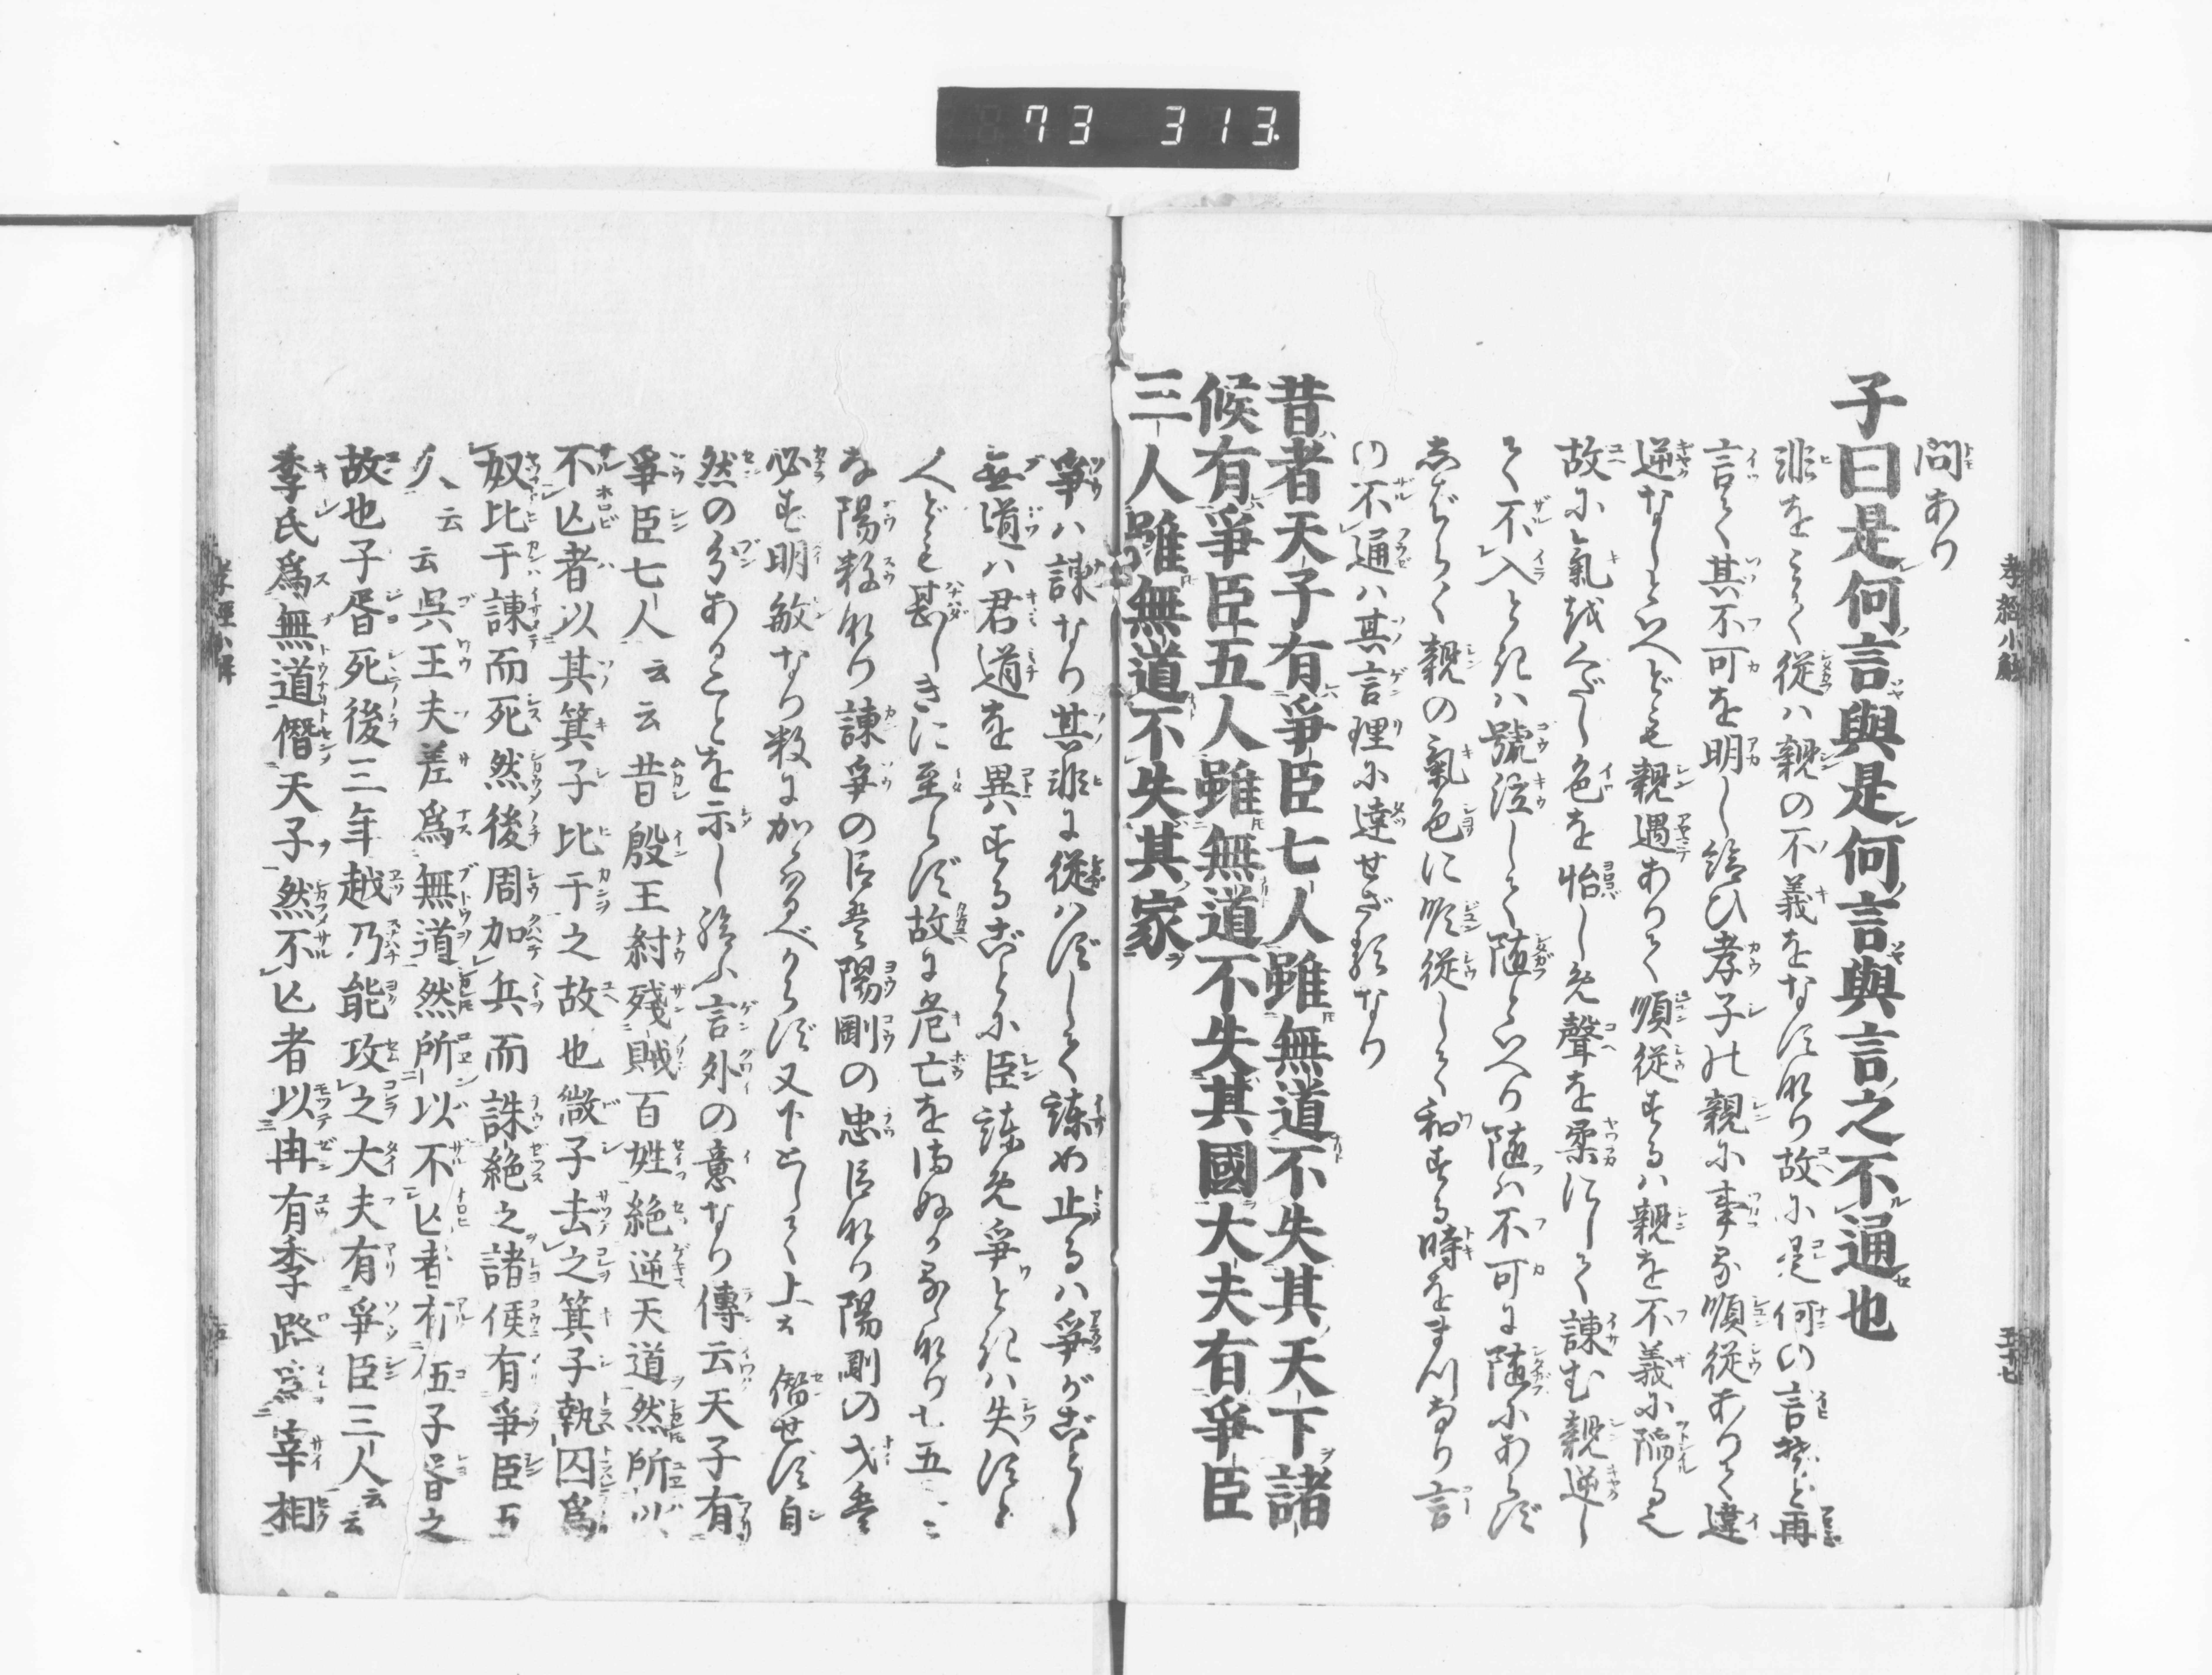 73 313.
孝經小解
五十七
問あり
子曰是何言與是何言與言之不通也
非をミて従ハ親の不義をなす也故に是何の言ぞと再
言て其不可を明し給ひ孝子の親に事る順従ありて違
逆なしといへども親過ありて順従するハ親を不義に陥る也
故に氣を下し色を怡しめ聲を柔にして諫む親逆し
て不入ときハ號泣して随といへり随ハ不可に随にあらず
しばらく親の氣色に順従して和する時をまつなり言
の不通ハ其言理に達せざるなり
昔者天子有爭臣七人雖無道不失其天下諸
候有爭臣五人雖無道不失其國大夫有爭臣
三人雖無道不失其家
爭ハ諫なり其非に従ハずして諫め止るハ爭がごとし
無道ハ君道を異するごとに臣諫め爭ときハ失すと
人ども甚しきに至らず故に危亡をまぬかるゝ也七五三
な陽数也諫爭の臣は陽剛の忠臣也陽剛の才は
必ず明敏なり数に加ふべからず又下として上を僭せず自
然の分あることを示し給ふ言外の意なり傳云天子有
爭臣七人云云昔殷王紂殘賊百姓絶逆天道然所以
不亾者以其箕子比干之故也微子去之箕子執囚爲
奴比干諫而死然後周加兵而誅絶之諸侯有爭臣五
人云云呉王夫差爲無道然所以不亾者有伍子胥之
故也子胥死後三年越乃能攻之大夫有爭臣三人云云
季氏爲無道僭天子然不亾者以冉有季路爲宰相
孝經小解